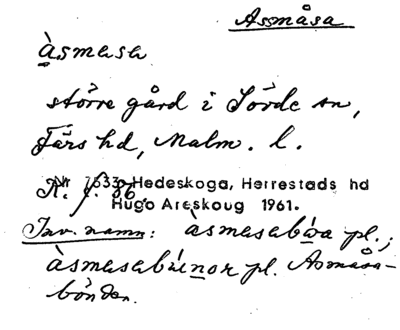 Asmåsa
àsmasa
större gård i Sövde sn,
Färs hd, Malm. l.
Nr 7533 Hedeskoga, Herrestads hd
R. f. 36.
Hugo Areskoug 1961.
Inv. namn: àsmasabúa pl.;
àsmasabúenor pl. Asmåsa-
bönder.